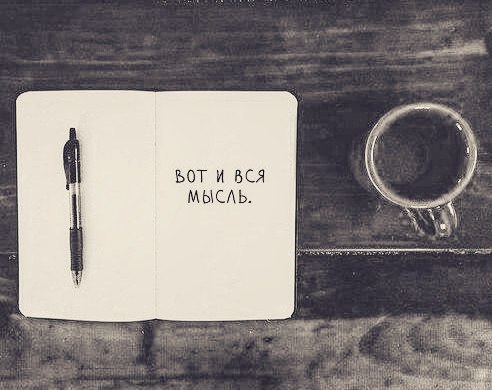 ВОТ И ВСЯ
МЫСЛЬ.